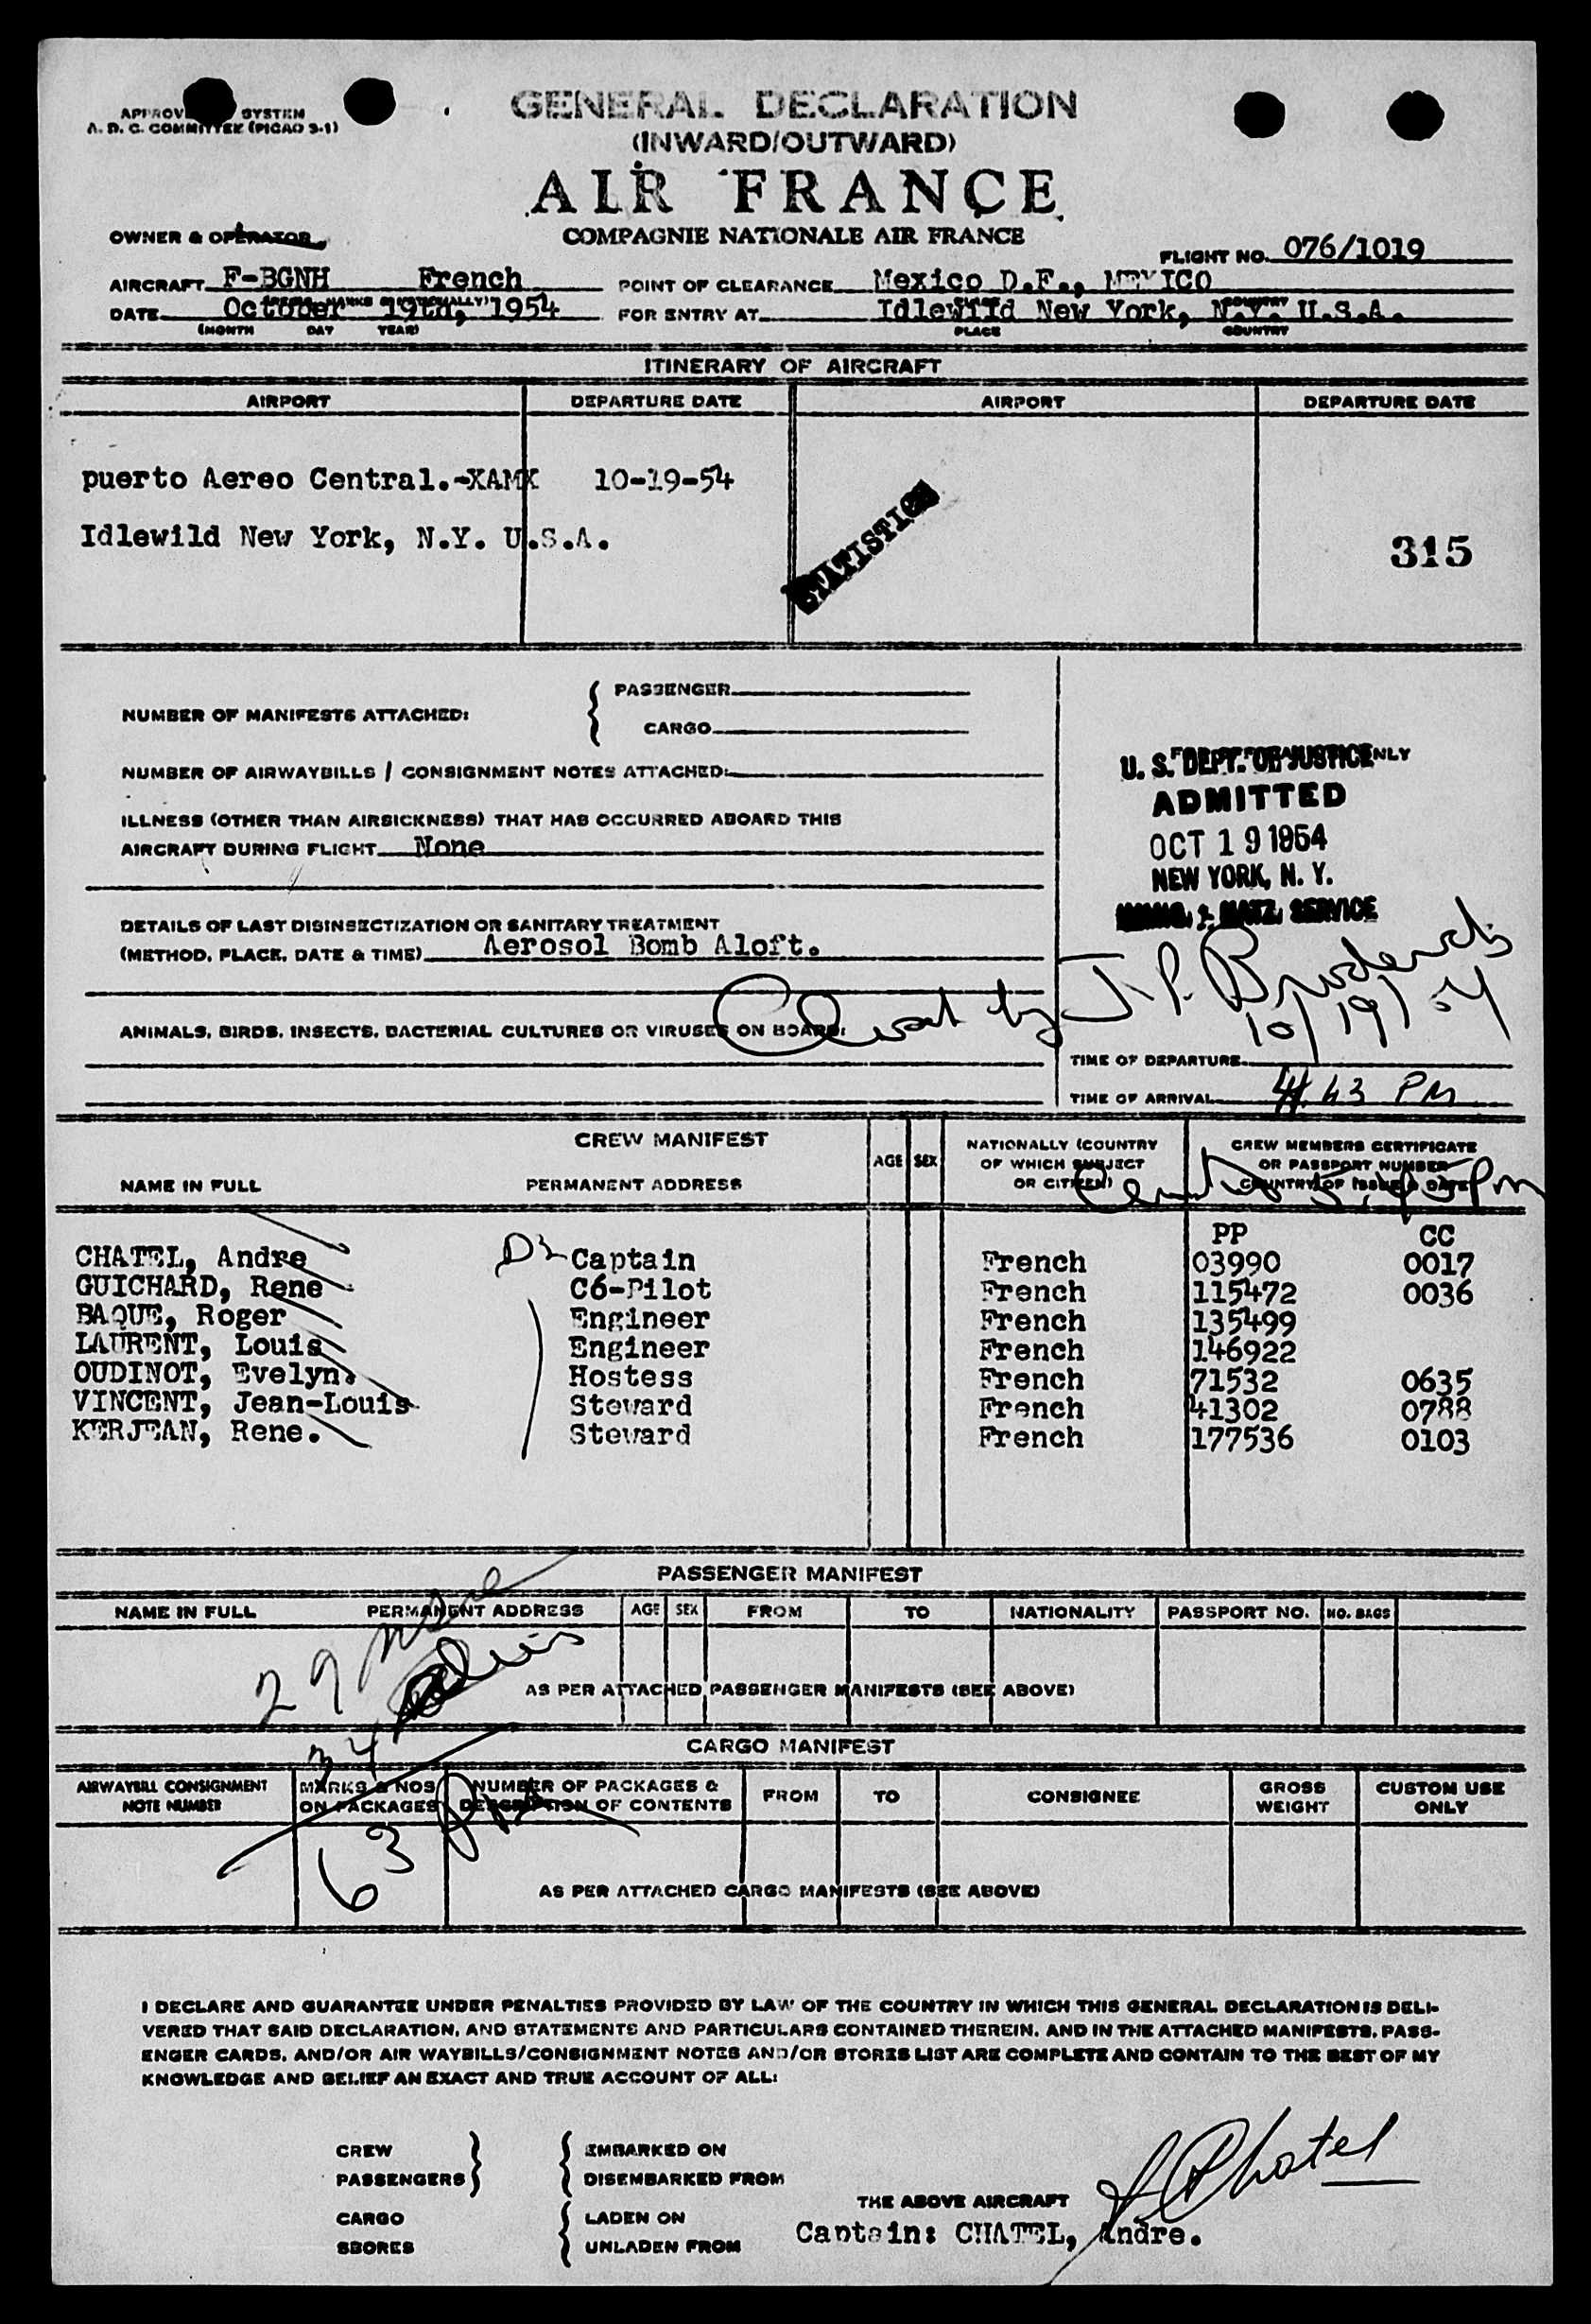 APPROV SYSTEM
A. D. C. COMMITTEE (PICAO 3-1)
GENERAL DECLARATION
(INWARD/OUTWARD)
AIR FRANCE
COMPAGNIE NATIONALE AIR FRANCE
OWNER & OPERATOR
FLIGHT NO. 076/1019
AIRCRAFT F-BGNH French POINT OF CLEARANCE Mexico D.F., MEXICO
DATE October 19th, 1954 FOR ENTRY AT Idlewild New York, N.Y. U.S.A.
(MONTH DAY YEAR) PLACE COUNTRY
ITINERARY OF AIRCRAFT
AIRPORT DEPARTURE DATE AIRPORT DEPARTURE DATE
puerto Aereo Central.-XAMX 10-19-54
STATISTICS
Idlewild New York, N.Y. U.S.A.
315
NUMBER OF MANIFESTS ATTACHED: PASSENGER
CARGO
NUMBER OF AIRWAYBILLS / CONSIGNMENT NOTES ATTACHED:
U. S. DEPT. OF JUSTICE ONLY
ADMITTED
OCT 19 1954
NEW YORK, N. Y.
IMMIG. & NATZ. SERVICE
ILLNESS (OTHER THAN AIRSICKNESS) THAT HAS OCCURRED ABOARD THIS
AIRCRAFT DURING FLIGHT None
DETAILS OF LAST DISINSECTIZATION OR SANITARY TREATMENT
(METHOD, PLACE, DATE & TIME) Aerosol Bomb Aloft.
by J. P.
10/19/54
ANIMALS, BIRDS, INSECTS, BACTERIAL CULTURES OR VIRUSES ON BOARD:
TIME OF DEPARTURE
TIME OF ARRIVAL 43 PM
CREW MANIFEST
NAME IN FULL PERMANENT ADDRESS AGE SEX NATIONALLY (COUNTRY OF WHICH SUBJECT OR CITIZEN) CREW MEMBERS CERTIFICATE OR PASSPORT NUMBER COUNTRY OF ISSUE & DATE
PP CC
CHATEL, Andre Captain French 03990 0017
GUICHARD, Rene C6-Pilot French 115472 0036
BAQUE, Roger Engineer French 135499
LAURENT, Louis Engineer French 146922
OUDINOT, Evelyn. Hostess French 71532 0635
VINCENT, Jean-Louis Steward French 41302 0788
KERJEAN, Rene. Steward French 177536 0103
PASSENGER MANIFEST
NAME IN FULL PERMANENT ADDRESS AGE SEX FROM TO NATIONALITY PASSPORT NO. NO. BAGS
29
AS PER ATTACHED PASSENGER MANIFESTS (SEE ABOVE)
34
CARGO MANIFEST
AIRWAYBILL CONSIGNMENT NOTE NUMBER MARKS & NOS ON PACKAGES NUMBER OF PACKAGES & DESCRIPTION OF CONTENTS FROM TO CONSIGNEE GROSS WEIGHT CUSTOM USE ONLY
63
AS PER ATTACHED CARGO MANIFESTS (SEE ABOVE)
I DECLARE AND GUARANTEE UNDER PENALTIES PROVIDED BY LAW OF THE COUNTRY IN WHICH THIS GENERAL DECLARATION IS DELI-
VERED THAT SAID DECLARATION, AND STATEMENTS AND PARTICULARS CONTAINED THEREIN, AND IN THE ATTACHED MANIFESTS, PASS-
ENGER CARDS, AND/OR AIR WAYBILLS/CONSIGNMENT NOTES AND/OR STORES LIST ARE COMPLETE AND CONTAIN TO THE BEST OF MY
KNOWLEDGE AND BELIEF AN EXACT AND TRUE ACCOUNT OF ALL:
CREW EMBARKED ON
PASSENGERS DISEMBARKED FROM
A Chatel
THE ABOVE AIRCRAFT
CARGO LADEN ON
Captain: CHATEL, Andre.
SBORES UNLADEN FROM